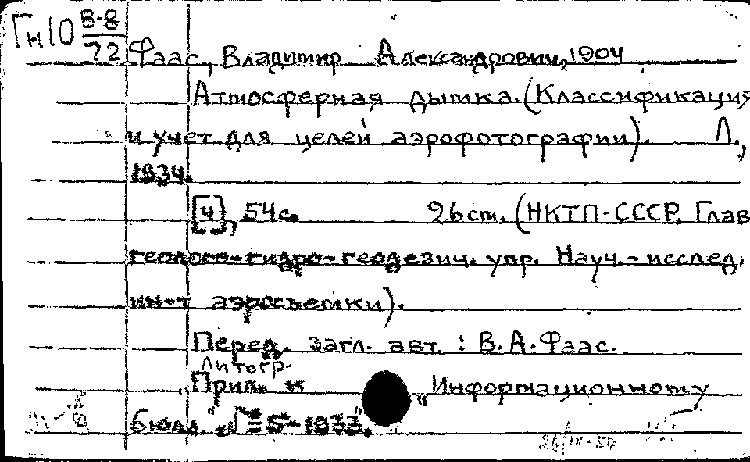 Гн10 8-8
72
Фаас, Владимир Александрович, 1904
Атмосферная дымка. (Классификация
и учет для целей аэрофотографии). Л.,
1934.
[4], 54с. 26 cm. (НКТП-СССР. Глав
геолого-гидро-геодезич. упр. Науч.-исслед,
ин-т аэросъемки).
Перед. загл. авт.: В.А. Фаас.
Литогр.
"Прил. к "Информационному
Бюлл." № 5-1933".